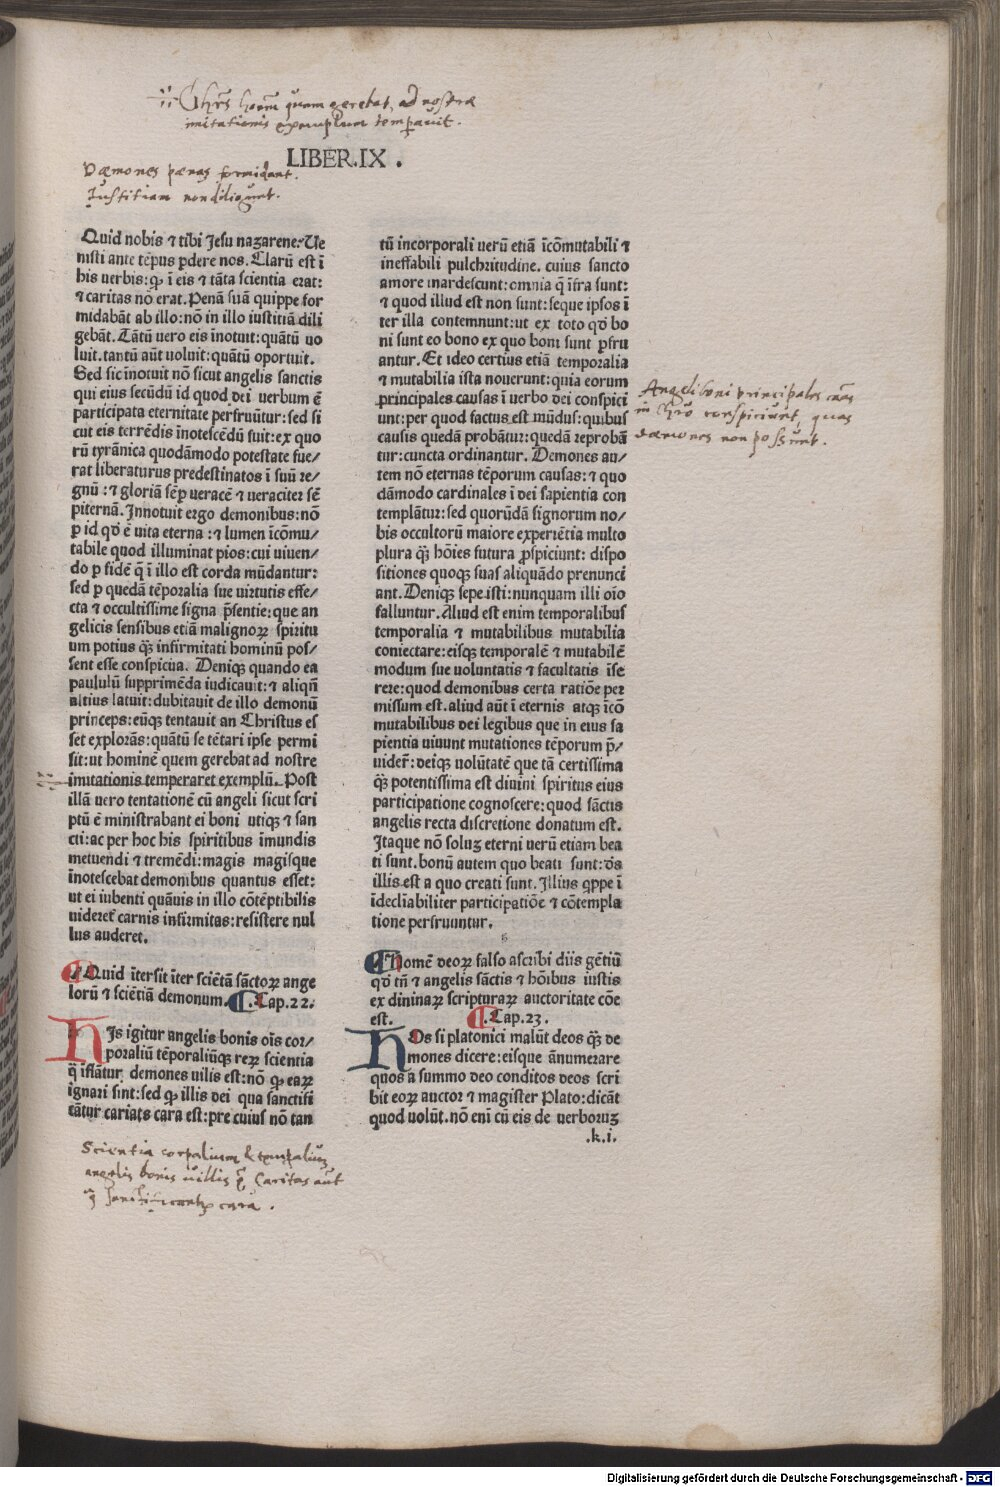 ·ı̈· Chr̄s hoīem quem gerebat, ad nostræ
imitationis exemplum temperauit.
LIBER.IX .
Dæmones pænas formidant.
Iustitiam non diligunt.
Quid nobis ⁊ tibi Jesu nazarene: Ue
nisti ante tēpus ꝑdere nos. Clarū est ī
his uerbis: ꝙ ī eis ⁊ tāta scientia erat:
⁊ caritas nō erat. Penā suā quippe for
midabāt ab illo: nō in illo iustitiā dili
gebāt. Tātū uero eis īnotuit: quātū uo
luit. tantū aūt uoluit: quātū oportuit.
Sed sic īnotuit nō sicut angelis sanctis
qui eius secūdū id quod dei uerbum ē
participata eternitate perfruūtur: sed si
cut eis terrēdis īnotescēdū fuit: ex quo
rū tyrānica quodāmodo potestate fue/
rat liberaturus predestinatos ī suū re/
gnū : ⁊ gloriā sēꝑ ueracē ⁊ ueraciter sē
piternā. Innotuit ergo demonibus: nō
ꝑ id qđ ē uita eterna : ⁊ lumen īcōmu/
tabile quod illuminat pios: cui uiuen/
do ꝑ fidē q̄ ī illo est corda mūdantur:
sed ꝑ quedā tēporalia sue uirtutis effe/
cta ⁊ occultissime signa p̄sentie: que an
gelicis sensibus etiā malignoꝝ spiritu
um potius q̄ꝫ infirmitati hominū pos/
sent esse conspicua. Deniqꝫ quando ea
paululū supprimēda iudicauit: ⁊ aliqñ
altius latuit: dubitauit de illo demonū
princeps: eūqꝫ tentauit an Christus es
set explorās: quātū se tētari ipse permi
sit: ut hominē quem gerebat ad nostre
imitationis temperaret exemplū. Post
illā uero tentationē cū angeli sicut scri
ptū ē ministrabant ei boni utiqꝫ ⁊ san
cti: ac per hoc his spiritibus īmundis
metuendi ⁊ tremēdi: magis magisque
īnotescebat demonibus quantus esset:
ut ei iubenti quāuis in illo cōtēptibilis
uideret̄ carnis infirmitas: resistere nul
lus auderet.
Quid ītersit īter sciētā sāctoꝝ ange
lorū ⁊ sciētiā demonum. Cap. 22.
HIs igitur angelis bonis oīs cor/
poraliū tēporaliūqꝫ reꝝ scientia
q̄ iflātur demones uilis est: nō ꝙ eaꝝ
ignari sint: sed ꝙ illis dei qua sanctifi
cātur cariats cara est: pre cuius nō tan
tū incorporali uerū etiā īcōmutabili ⁊
ineffabili pulchritudine. cuius sancto
amore inardescunt: omnia q̄ īfra sunt:
⁊ quod illud est non sunt: seque ipsos ī
ter illa contemnunt: ut ex toto qđ bo
ni sunt eo bono ex quo boni sunt ꝑfru
antur. Et ideo certius etiā temporalia
⁊ mutabilia ista nouerunt: quia eorum
principales causas ī uerbo dei conspici
unt: per quod factus est mūdus: quibus
causis quedā probātur: quedā reprobā
tur: cuncta ordinantur. Demones au/
tem nō eternas tēporum causas: ⁊ quo
dāmodo cardinales ī dei sapientia con
templātur: sed quorūdā signorum no/
bis occultorū maiore experiētia multo
plura q̄ꝫ hōies futura ꝓspiciunt: dispo
sitiones quoqꝫ suas aliquādo prenunci
ant. Deniqꝫ sepe isti: nunquam illi oīo
falluntur. Aliud est enim temporalibus
temporalia ⁊ mutabilibus mutabilia
coniectare: eisqꝫ temporalē ⁊ mutabilē
modum sue uoluntatis ⁊ facultatis īse
rere: quod demonibus certa ratiōe per
missum est. aliud aūt ī eternis atqꝫ īcō
mutabilibus dei legibus que in eius sa
pientia uiuunt mutationes tēporum p̄/
uider̄: deiqꝫ volūtatē que tā certissima
q̄ꝫ potentissima est diuini spiritus eius
participatione cognoscere: quod sāctis
angelis recta discretione donatum est.
Itaque nō soluꝫ eterni uerū etiam bea
ti sunt. bonū autem quo beati sunt: ds̄
illis est a quo creati sunt. Illius q̄ppe ī
idecliabiliter participatiōe ⁊ cōtempla
tione perfruuntur.
Nomē deoꝝ falso ascribi diis gētiū
qđ tn̄ ⁊ angelis sāctis ⁊ hōibus iustis
ex dininaꝝ scripturaꝝ auctoritate cōe
est. Cap. 23.
HOs si platonici malūt deos q̄ꝫ de
mones dicere: eisque ānumerare
quos a summo deo conditos deos scri
bit eoꝝ auctor ⁊ magister Plato: dicāt
quod uolūt. nō eni cū eis de uerboruꝫ
.k.i.
Angeli boni principales caās
in Chr̄o conspiciūt, quas
dæmones non possunt.
Scientia corꝑalium & temꝑaliū
angelis bonis uillis ꝙ Caritas aūt
q̄ sanctificantꝛ cara .
Digitalisierung gefördert durch die Deutsche Forschungsgemeinschaft - DFG